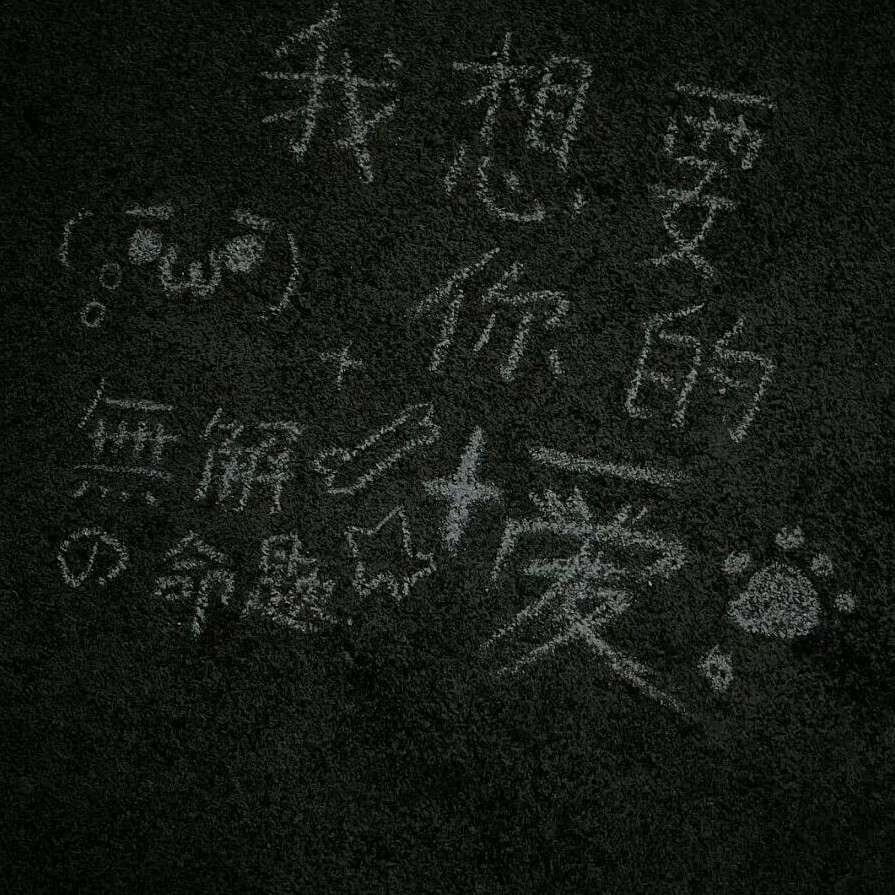 我想要
你的
愛
(・ω・)
無解
の命題